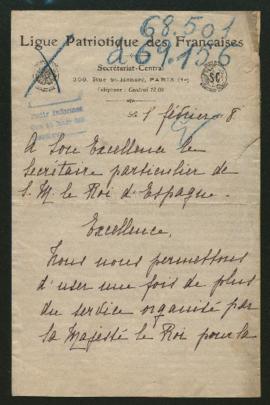 68.501
a 69.126
Ligue Patriotique des Françaises
Secrétariat-Central
PARIS
Téléphone : Central
le 1 février 8
A Son Excellence le
Secrétaire particulier de
S. M. le Roi d'Espagne.
Excellence,
Nous nous permettons
d'user une fois de plus
du service organisé par
Sa Majesté le Roi pour la